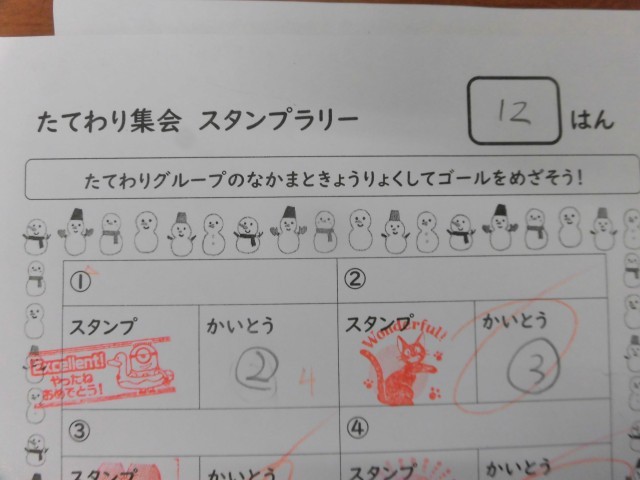 たてわり集会 スタンプラリー
12 はん
たてわりグループのなかまときょうりょくしてゴールをめざそう!
① ②
スタンプ かいとう スタンプ かいとう
Excellent!
やったね
おめでとう!
② 4
Wonderful!
③
③ ④
スタンプ かいとう スタンプ かいとう